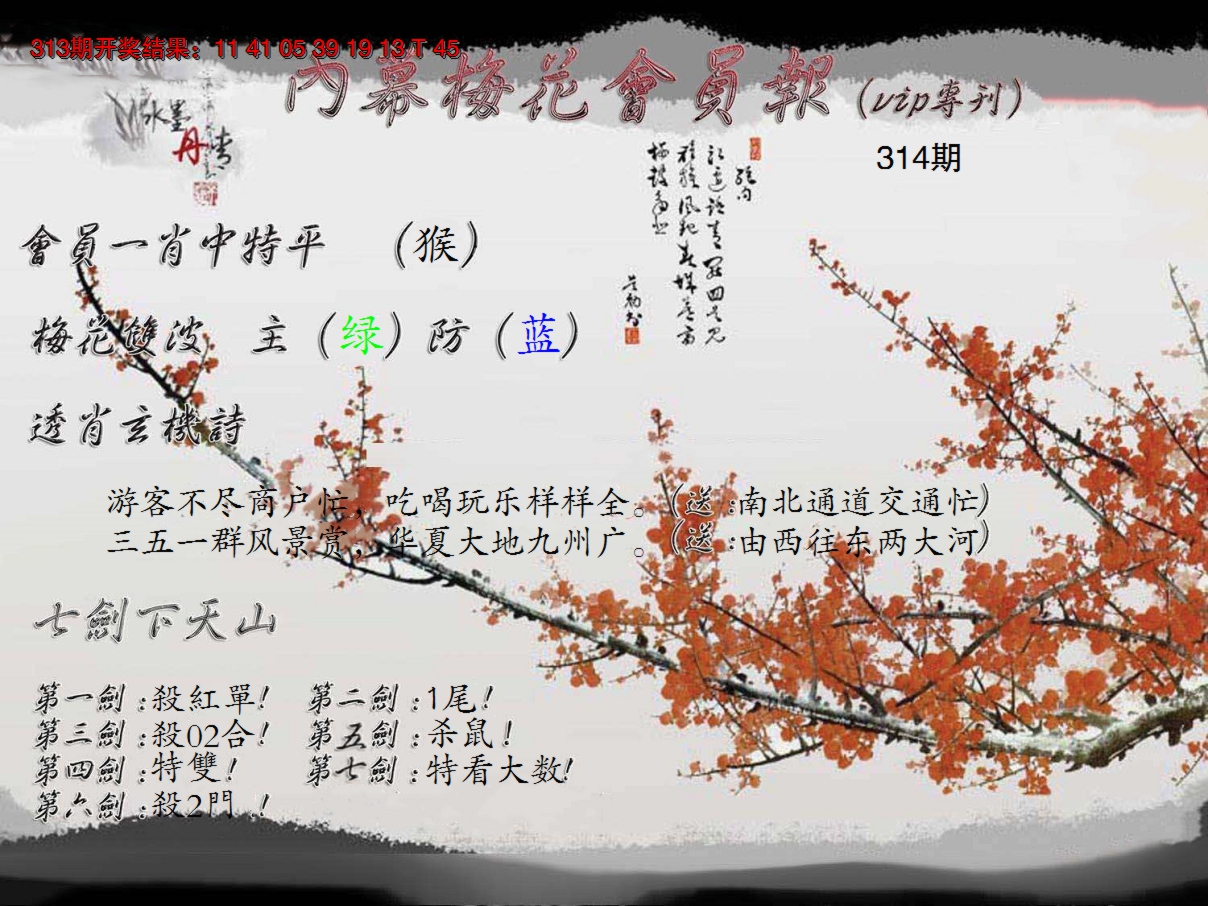 313期开奖结果：11 41 05 39 19 13 T 45
內幕梅花會員報(vip專刊)
314期
水墨
丹情
會員一肖中特平 (猴)
梅花雙波 主(绿)防(蓝)
透肖玄機詩
游客不尽商户忙，吃喝玩乐样样全。(送:南北通道交通忙)
三五一群风景赏，华夏大地九州广。(送:由西往东两大河)
七劍下天山
第一劍:殺紅單! 第二劍:1尾!
第三劍:殺02合! 第五劍:杀鼠!
第四劍:特雙! 第七劍:特看大数!
第六劍:殺2門 !